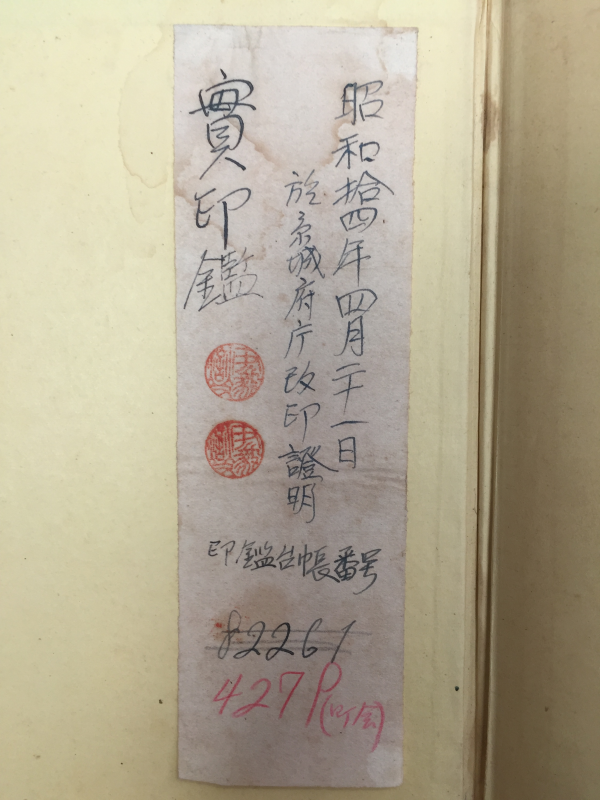 昭和拾四年四月二十一日
於京城府庁改印證明
實印鑑
印鑑台帳番号
82261
427P(町会)